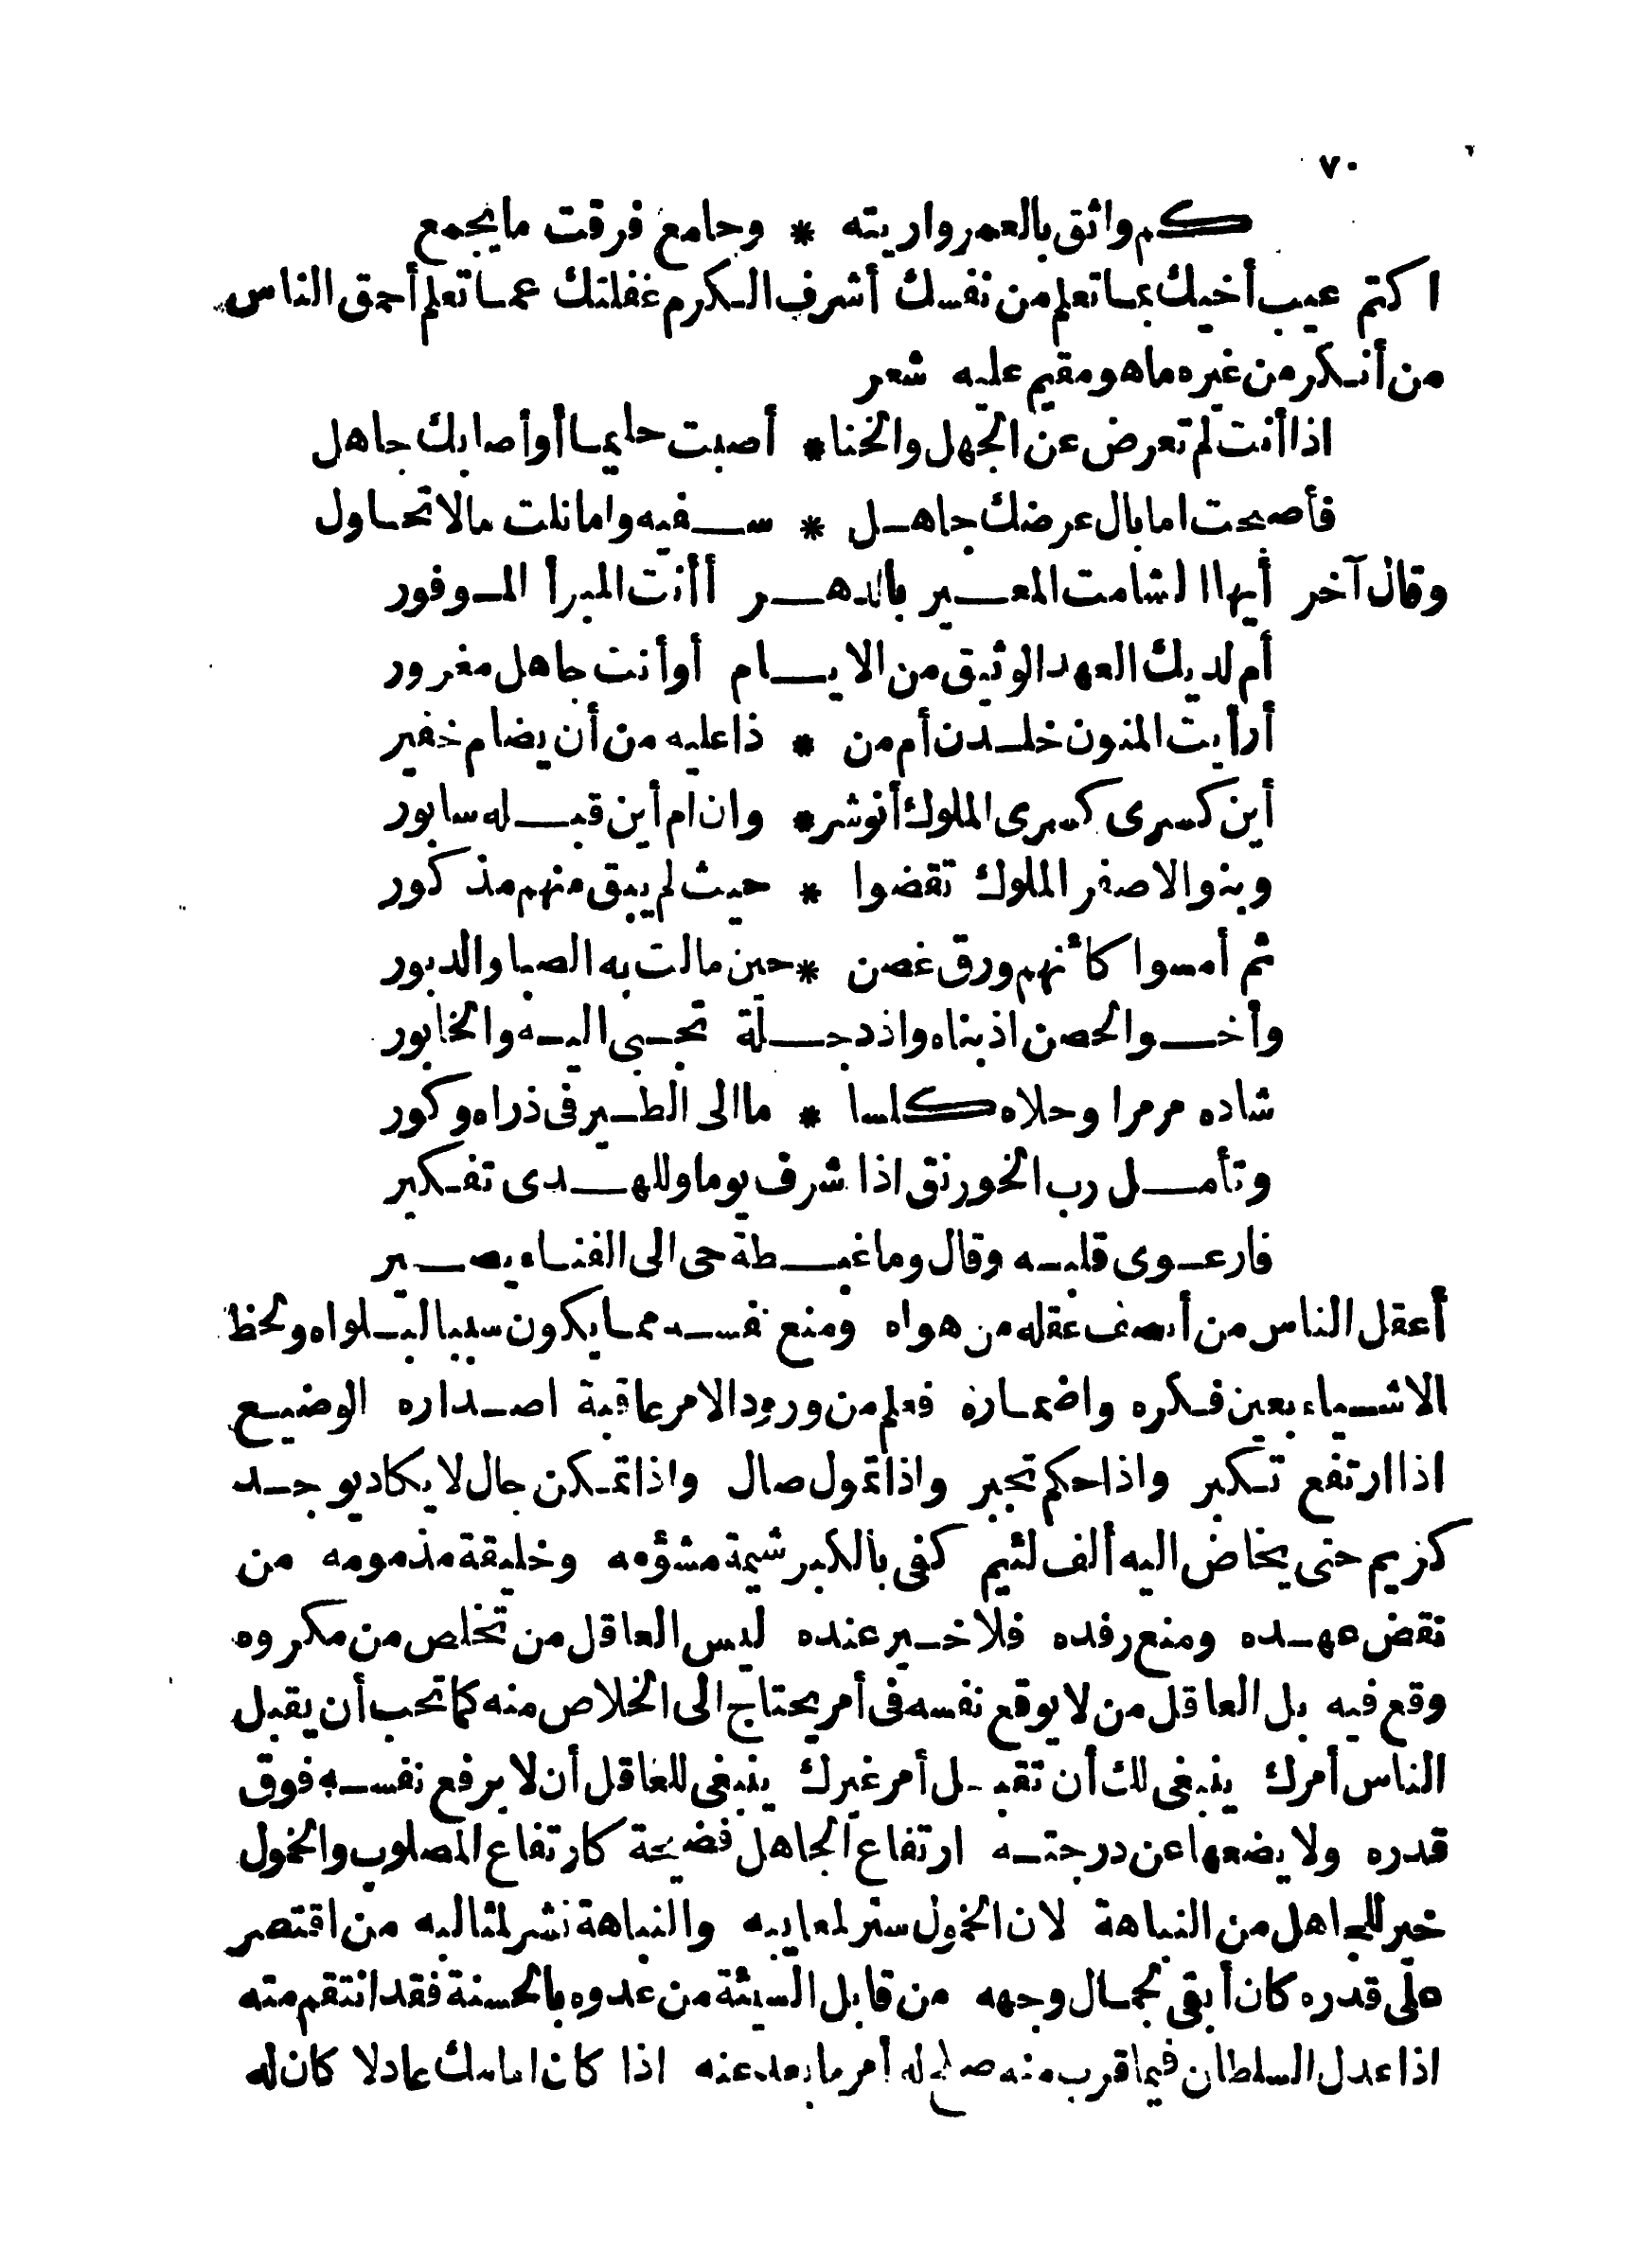 ٧٠
كم واثق بالعمر واريته * وجامع فرقت ما يجمع
اكتم عيب أخيك بما تعلم من نفسك أشرف الكرم غفلتك عما تعلم أحمق الناس
من أنكر من غيره ما هو مقيم عليه شعر
اذا أنت لم تعرض عن الجهل والخنا * أصبت حليما أو أصابك جاهل
فأصبحت اما بال عرضك جاهل * سفيه واما نلت مالا تحاول
وقال آخر أيها الشامت المعير بالدهر أأنت المبرأ الموفور
أم لديك العهد الوثيق من الايام أو أنت جاهل مغرور
أرأيت المنون خلدن أم من * ذا عليه من أن يضام خفير
أين كسرى كسرى الملوك أنوشر * وان أم أين قبله سابور
وبنو الاصفر الملوك تقضوا * حيث لم يبق منهم مذكور
ثم أمسوا كأنهم ورق غصن * حين مالت به الصبا والدبور
وأخو الحصن اذ بناه واذ دجلة تجبى اليه والخابور
شاده مرمرا وحلاه كلسا * ما الى الطير فى ذراه وكور
وتأمل رب الخورنق اذا شرف يوما وللهدى تفكير
فارعوى قلبه وقال وما غبطة حى الى الفناء يصير
أعقل الناس من أنصف عقله من هواه ومنع نفسه مما يكون سببا لبلواه ولحظ
الاشياء بعين فكره واضماره فعلم من ورود الامر عاقبة اصداره الوضيع
اذا ارتفع تكبر واذا حكم تجبر واذا تمول صال واذا تمكن جال لا يكاد يوجد
كريم حتى يخاض اليه ألف لئيم كفى بالكبر شيمة مشؤمه وخليقة مذمومه من
نقض عهده ومنع رفده فلا خير عنده ليس العاقل من تخلص من مكروه
وقع فيه بل العاقل من لا يوقع نفسه فى أمر يحتاج الى الخلاص منه كما تحب أن يقبل
الناس أمرك ينبغى لك أن تقبل أمر غيرك ينبغى للعاقل أن لا يرفع نفسه فوق
قدره ولا يضعها عن درجته ارتفاع الجاهل فضيحة كارتفاع المصلوب والخمول
خير للجاهل من النباهة لان الخمول ستر لمعايبه والنباهة نشر لمثالبه من اقتصر
على قدره كان أبقى لجمال وجهه من قابل السيئة من عدوه بالحسنة فقد انتقم منه
اذا عدل السلطان فيما قرب منه صلح له أمر ما بعد عنه اذا كان امامك عادلا كان له